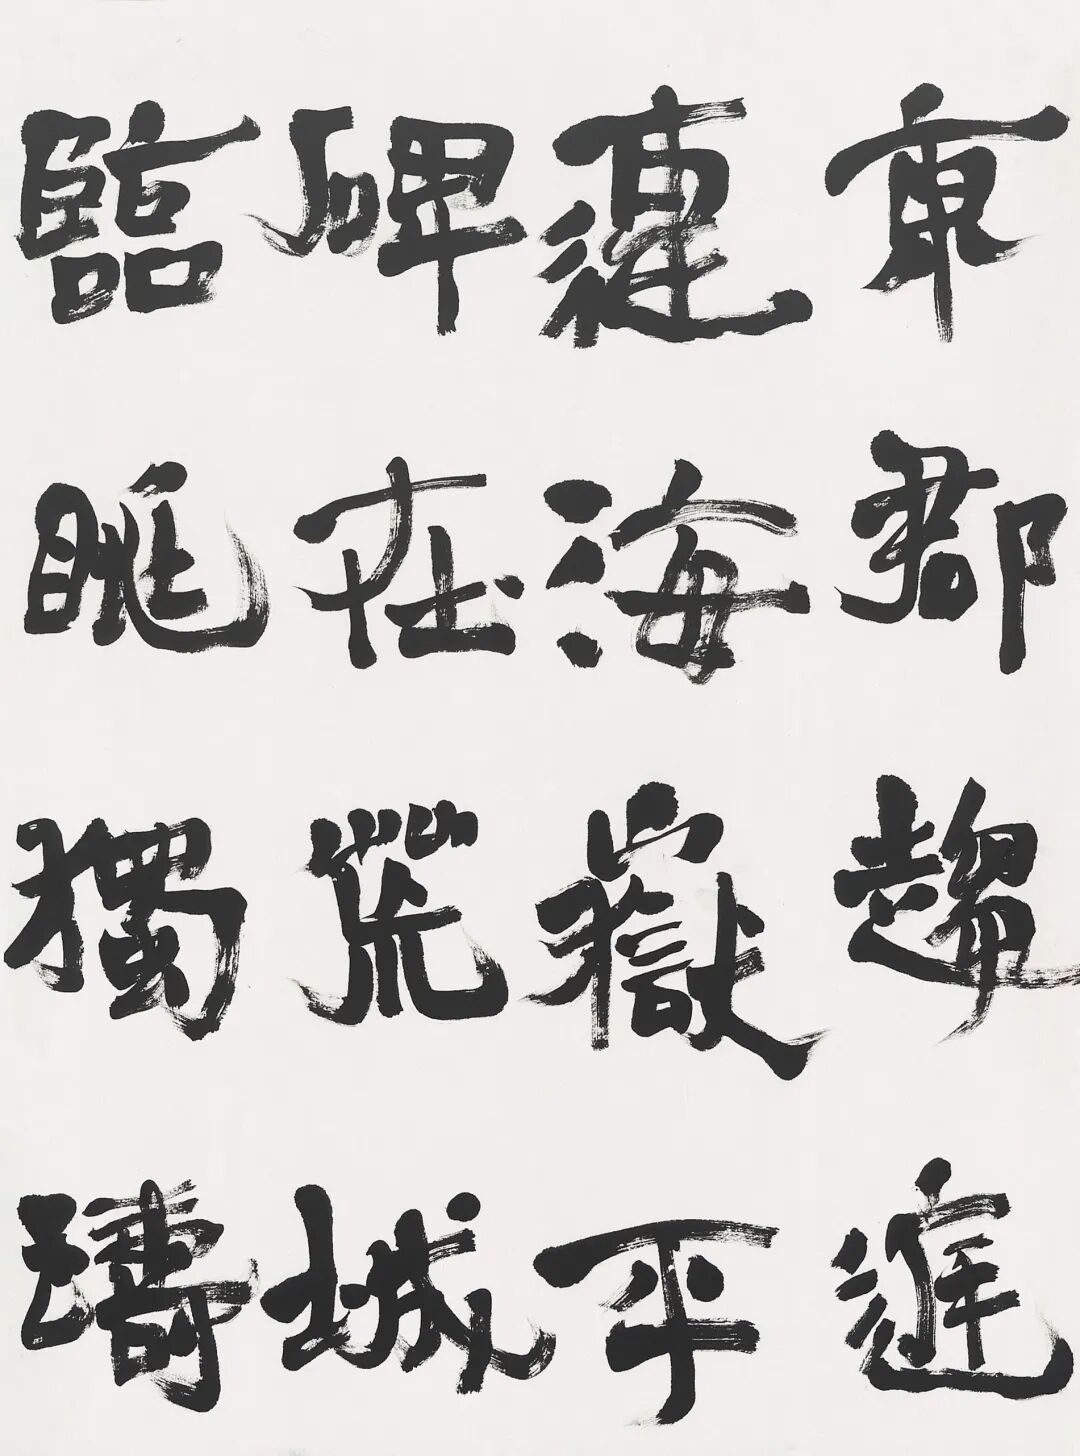 東郡趨庭
連海嶽平
碑在荒城
臨眺獨躊